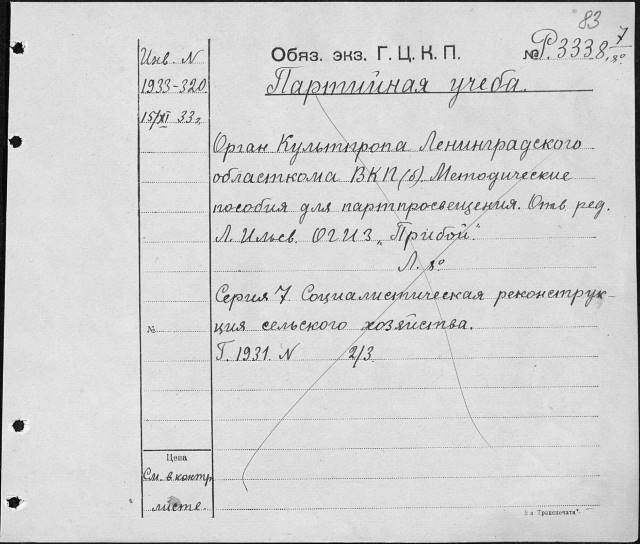 83
Обяз. экз. Г. Ц. К. П.
№ Р.3338, 7/8°
Партийная учеба.
Инв. N
1933-320
15/XI 33 г.
Орган Культпропа Ленинградского
областкома ВКП(б). Методические
пособия для партпросвещения. Отв. ред.
Л. Ильев. ОГИЗ „Прибой“.
Л. 8°
Серия 7. Социалистическая реконструк-
ция сельского хозяйства.
№
Г. 1931. N 2/3.
Цена
См. в контр.
листе.